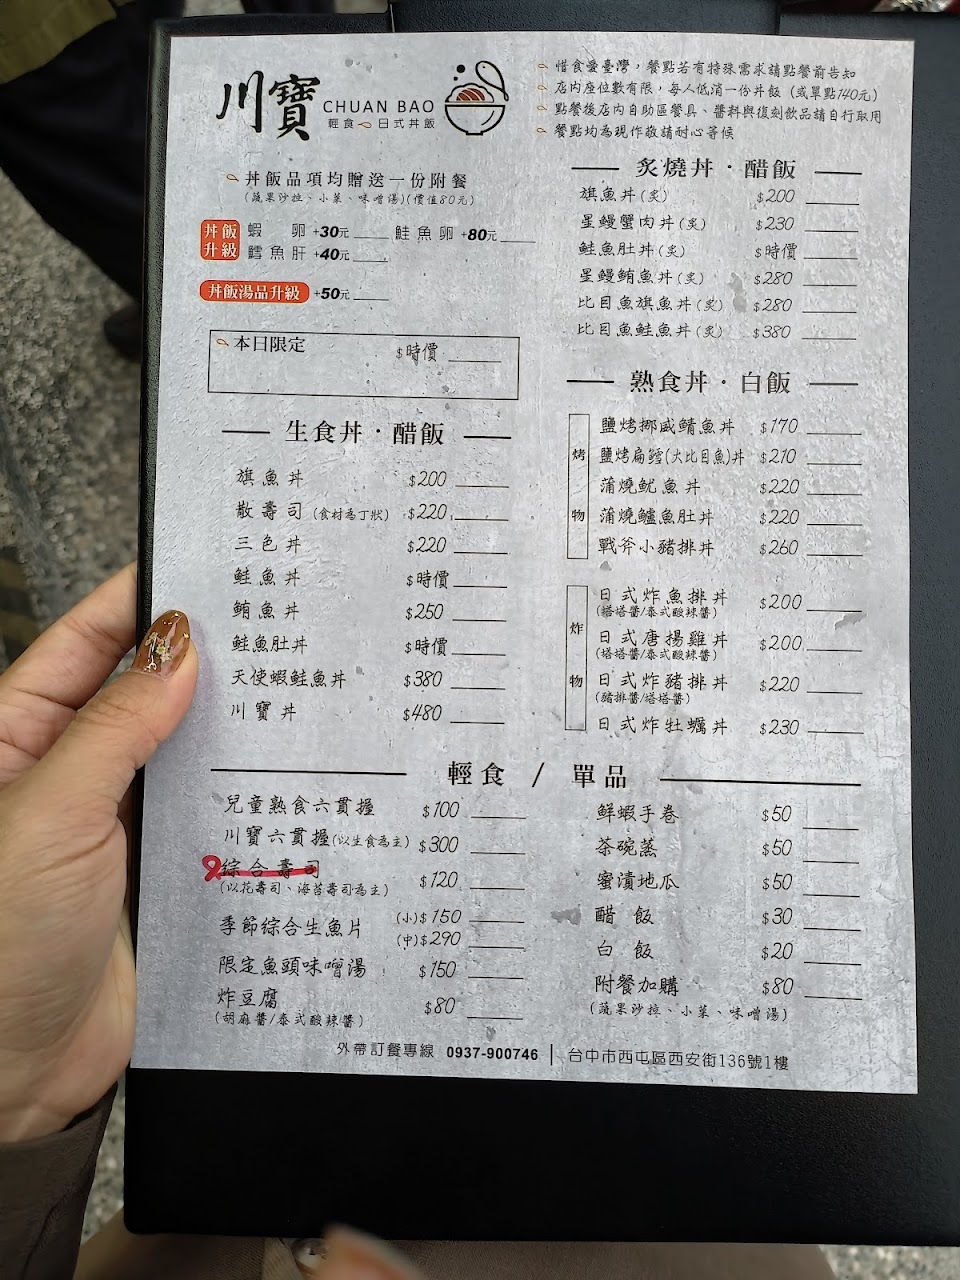 川寶
CHUAN BAO
輕食 日式丼飯
惜食愛臺灣，餐點若有特殊需求請點餐前告知
店內座位數有限，每人低消一份丼飯 (或單點140元)
點餐後店內自助區餐具、醬料與復刻飲品請自行取用
餐點均為現作敬請耐心等候
丼飯品項均贈送一份附餐
(蔬果沙拉、小菜、味噌湯)(價值80元)
丼飯升級
蝦 卵 +30元 鮭魚卵 +80元
鱈魚肝 +40元
丼飯湯品升級 +50元
本日限定 $時價
生食丼·醋飯
旗魚丼 $200
散壽司 (食材為丁狀) $220
三色丼 $220
鮭魚丼 $時價
鮪魚丼 $250
鮭魚肚丼 $時價
天使蝦鮭魚丼 $380
川寶丼 $480
炙燒丼·醋飯
旗魚丼(炙) $200
星鰻蟹肉丼(炙) $230
鮭魚肚丼(炙) $時價
星鰻鮪魚丼(炙) $280
比目魚旗魚丼(炙) $280
比目魚鮭魚丼(炙) $380
熟食丼·白飯
烤物
鹽烤挪威鯖魚丼 $170
鹽烤扁鱈(大比目魚)丼 $210
蒲燒魷魚丼 $220
蒲燒鱸魚肚丼 $220
戰斧小豬排丼 $260
炸物
日式炸魚排丼 $200
(塔塔醬/泰式酸辣醬)
日式唐揚雞丼 $200
(塔塔醬/泰式酸辣醬)
日式炸豬排丼 $220
(豬排醬/塔塔醬)
日式炸牡蠣丼 $230
輕食 / 單品
兒童熟食六貫握 $100
川寶六貫握(以生食為主) $300
綜合壽司 $120
(以花壽司、海苔壽司為主)
季節綜合生魚片 (小)$150
(中)$290
限定魚頭味噌湯 $150
炸豆腐 $80
(胡麻醬/泰式酸辣醬)
鮮蝦手卷 $50
茶碗蒸 $50
蜜漬地瓜 $50
醋飯 $30
白飯 $20
附餐加購 $80
(蔬果沙拉、小菜、味噌湯)
外帶訂餐專線 0937-900746 | 台中市西屯區西安街136號1樓